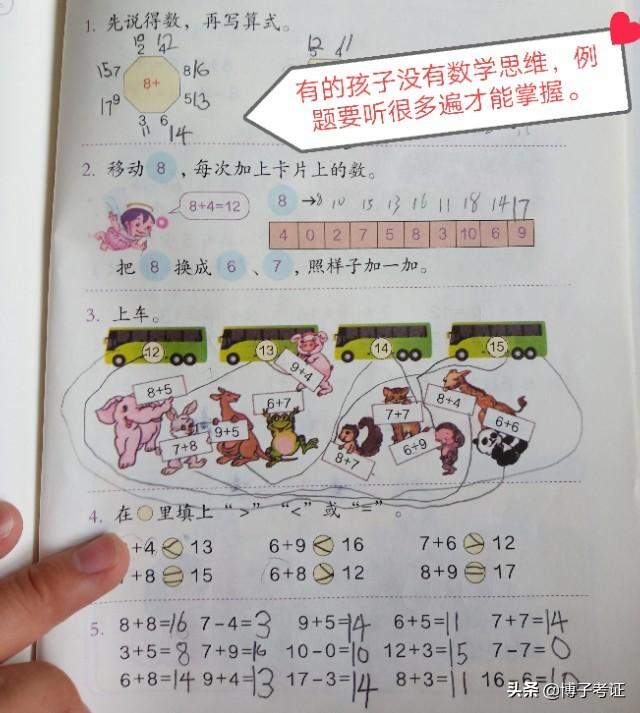 1. 先说得数，再写算式。
12 11
157 8+ 816
179 513
3 6
11 14
有的孩子没有数学思维，例
题要听很多遍才能掌握。
2. 移动 8 ，每次加上卡片上的数。
8+4=12 8 → 8 10 15 13 16 11 18 14 17
4 0 2 7 5 8 3 10 6 9
把 8 换成 6 、 7 ，照样子加一加。
3. 上车。
12 13 14 15
9+4
8+5 6+7 7+7 8+4
7+8 9+5 8+7 6+9 6+6
4. 在○里填上“>”“<”或“=”。
+4 < 13 6+9 < 16 7+6 > 12
+8 = 15 6+8 > 12 8+9 = 17
5. 8+8=16 7-4=3 9+5=14 6+5=11 7+7=14
3+5=8 7+9=16 10-0=10 12+3=15 7-7=0
6+8=14 9+4=13 17-3=14 8+3=11 16-6=10
头条 @博子考证